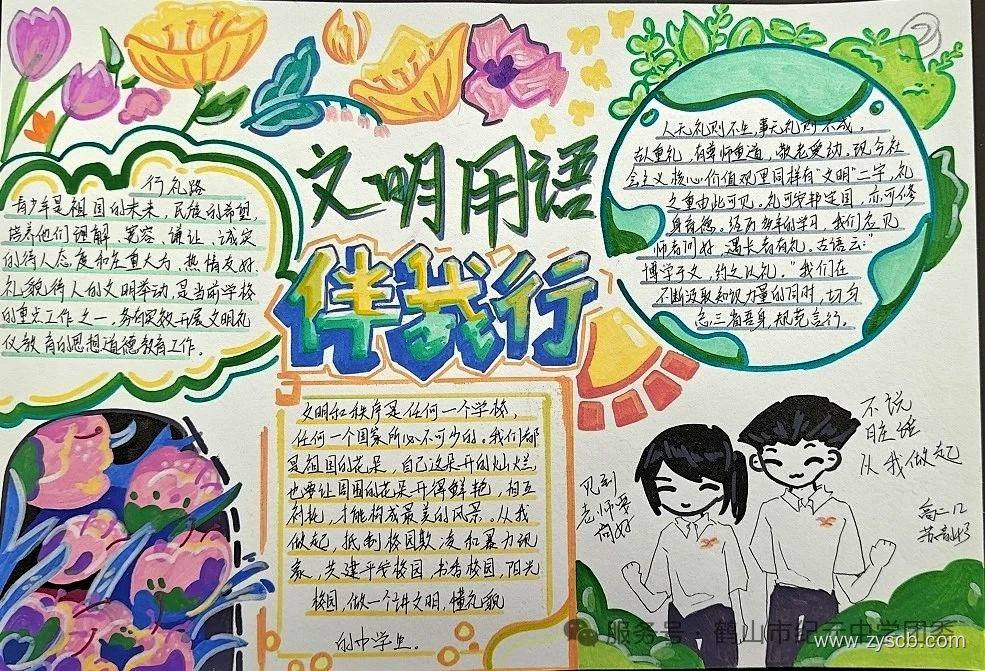 文明用语
伴我行
行礼路
青少年是祖国的未来，民族的希望，
培养他们理解、宽容、谦让、诚实
的待人态度和庄重大方、热情友好、
礼貌待人的文明举动，是当前学校
的重点工作之一。务实实效开展文明礼
仪教育的思想道德教育工作。
人无礼则不生，事无礼则不成，
故重礼，有尊师重道，敬老爱幼。现今社
会主义核心价值观里同样有“文明”二字，礼
之重由此可见。礼可安邦定国，亦可修
身育德。经历多年的学习，我们应见
师者问好，遇长者有礼。古语云：“
博学于文，约之以礼。”我们在
不断汲取知识力量的同时，切勿
忘三省吾身，规范言行。
文明和秩序是任何一个学校，
任何一个国家所必不可少的。我们都
是祖国的花朵，自己这朵开的灿烂，
也要让周围的花朵开得鲜艳，相互
衬托，才能构成最美的风景。从我
做起，抵制校园欺凌和暴力现
象，共建平安校园，书香校园，阳光
校园，做一个讲文明，懂礼貌
的中学生。
见到
老师要
问好
不说
脏话
从我做起
高二12
服务号 · 鹤山市纪元中学团委
www.zyscb.com